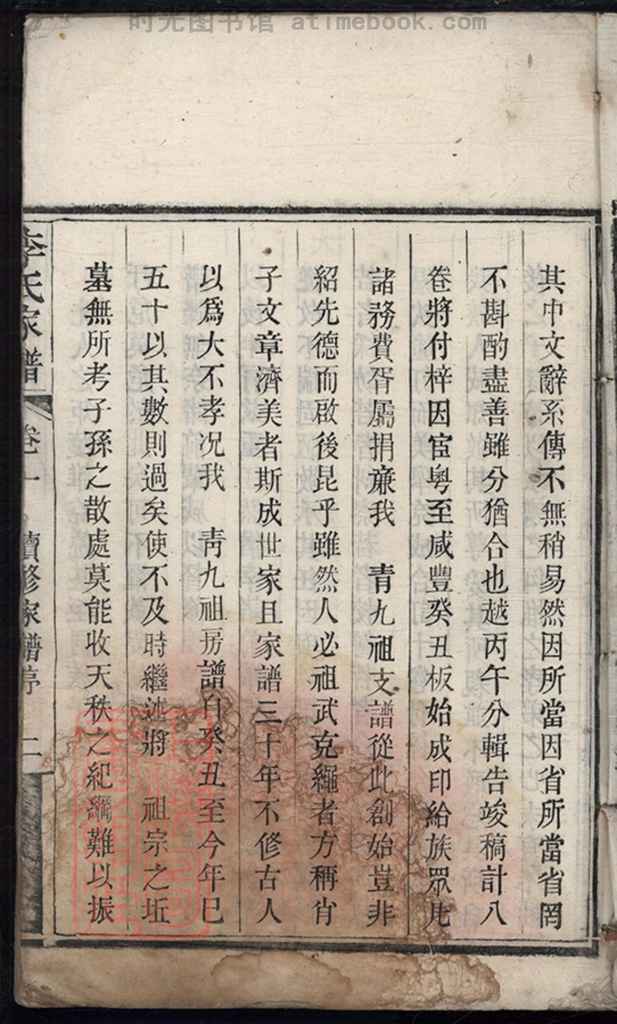 时光图书馆 atimebook.com
其中文辭系傳不無稍易然因所當因省所當省罔
不斟酌盡善雖分猶合也越丙午分輯告竣稿計八
卷將付梓因宦粵至咸豐癸丑板始成印給族眾凡
諸務費胥屬捐亷我 青九祖支譜從此創始豈非
紹先德而啟後昆乎雖然人必祖武克繩者方稱肖
子文章濟美者斯成世家且家譜三十年不修古人
以爲大不孝况我 青九祖房譜自癸丑至今年已
五十以其數則過矣使不及時繼述將 祖宗之坵
墓無所考子孫之散處莫能收天秩之紀綱難以振
李氏家譜 卷一 續修家譜序 二